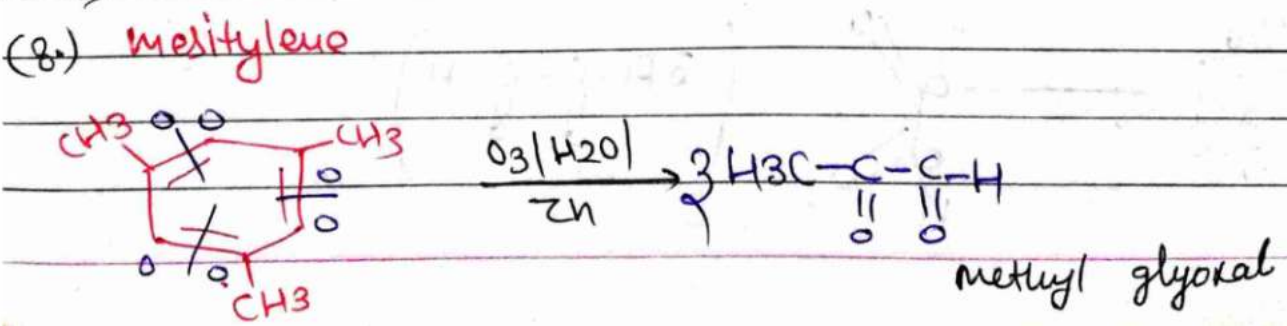 (8.) mesitylene
CH3 O O CH3
O
O
O O
CH3
O3/H2O/
Zn
3 H3C-C-C-H
O O
methyl glyoxal